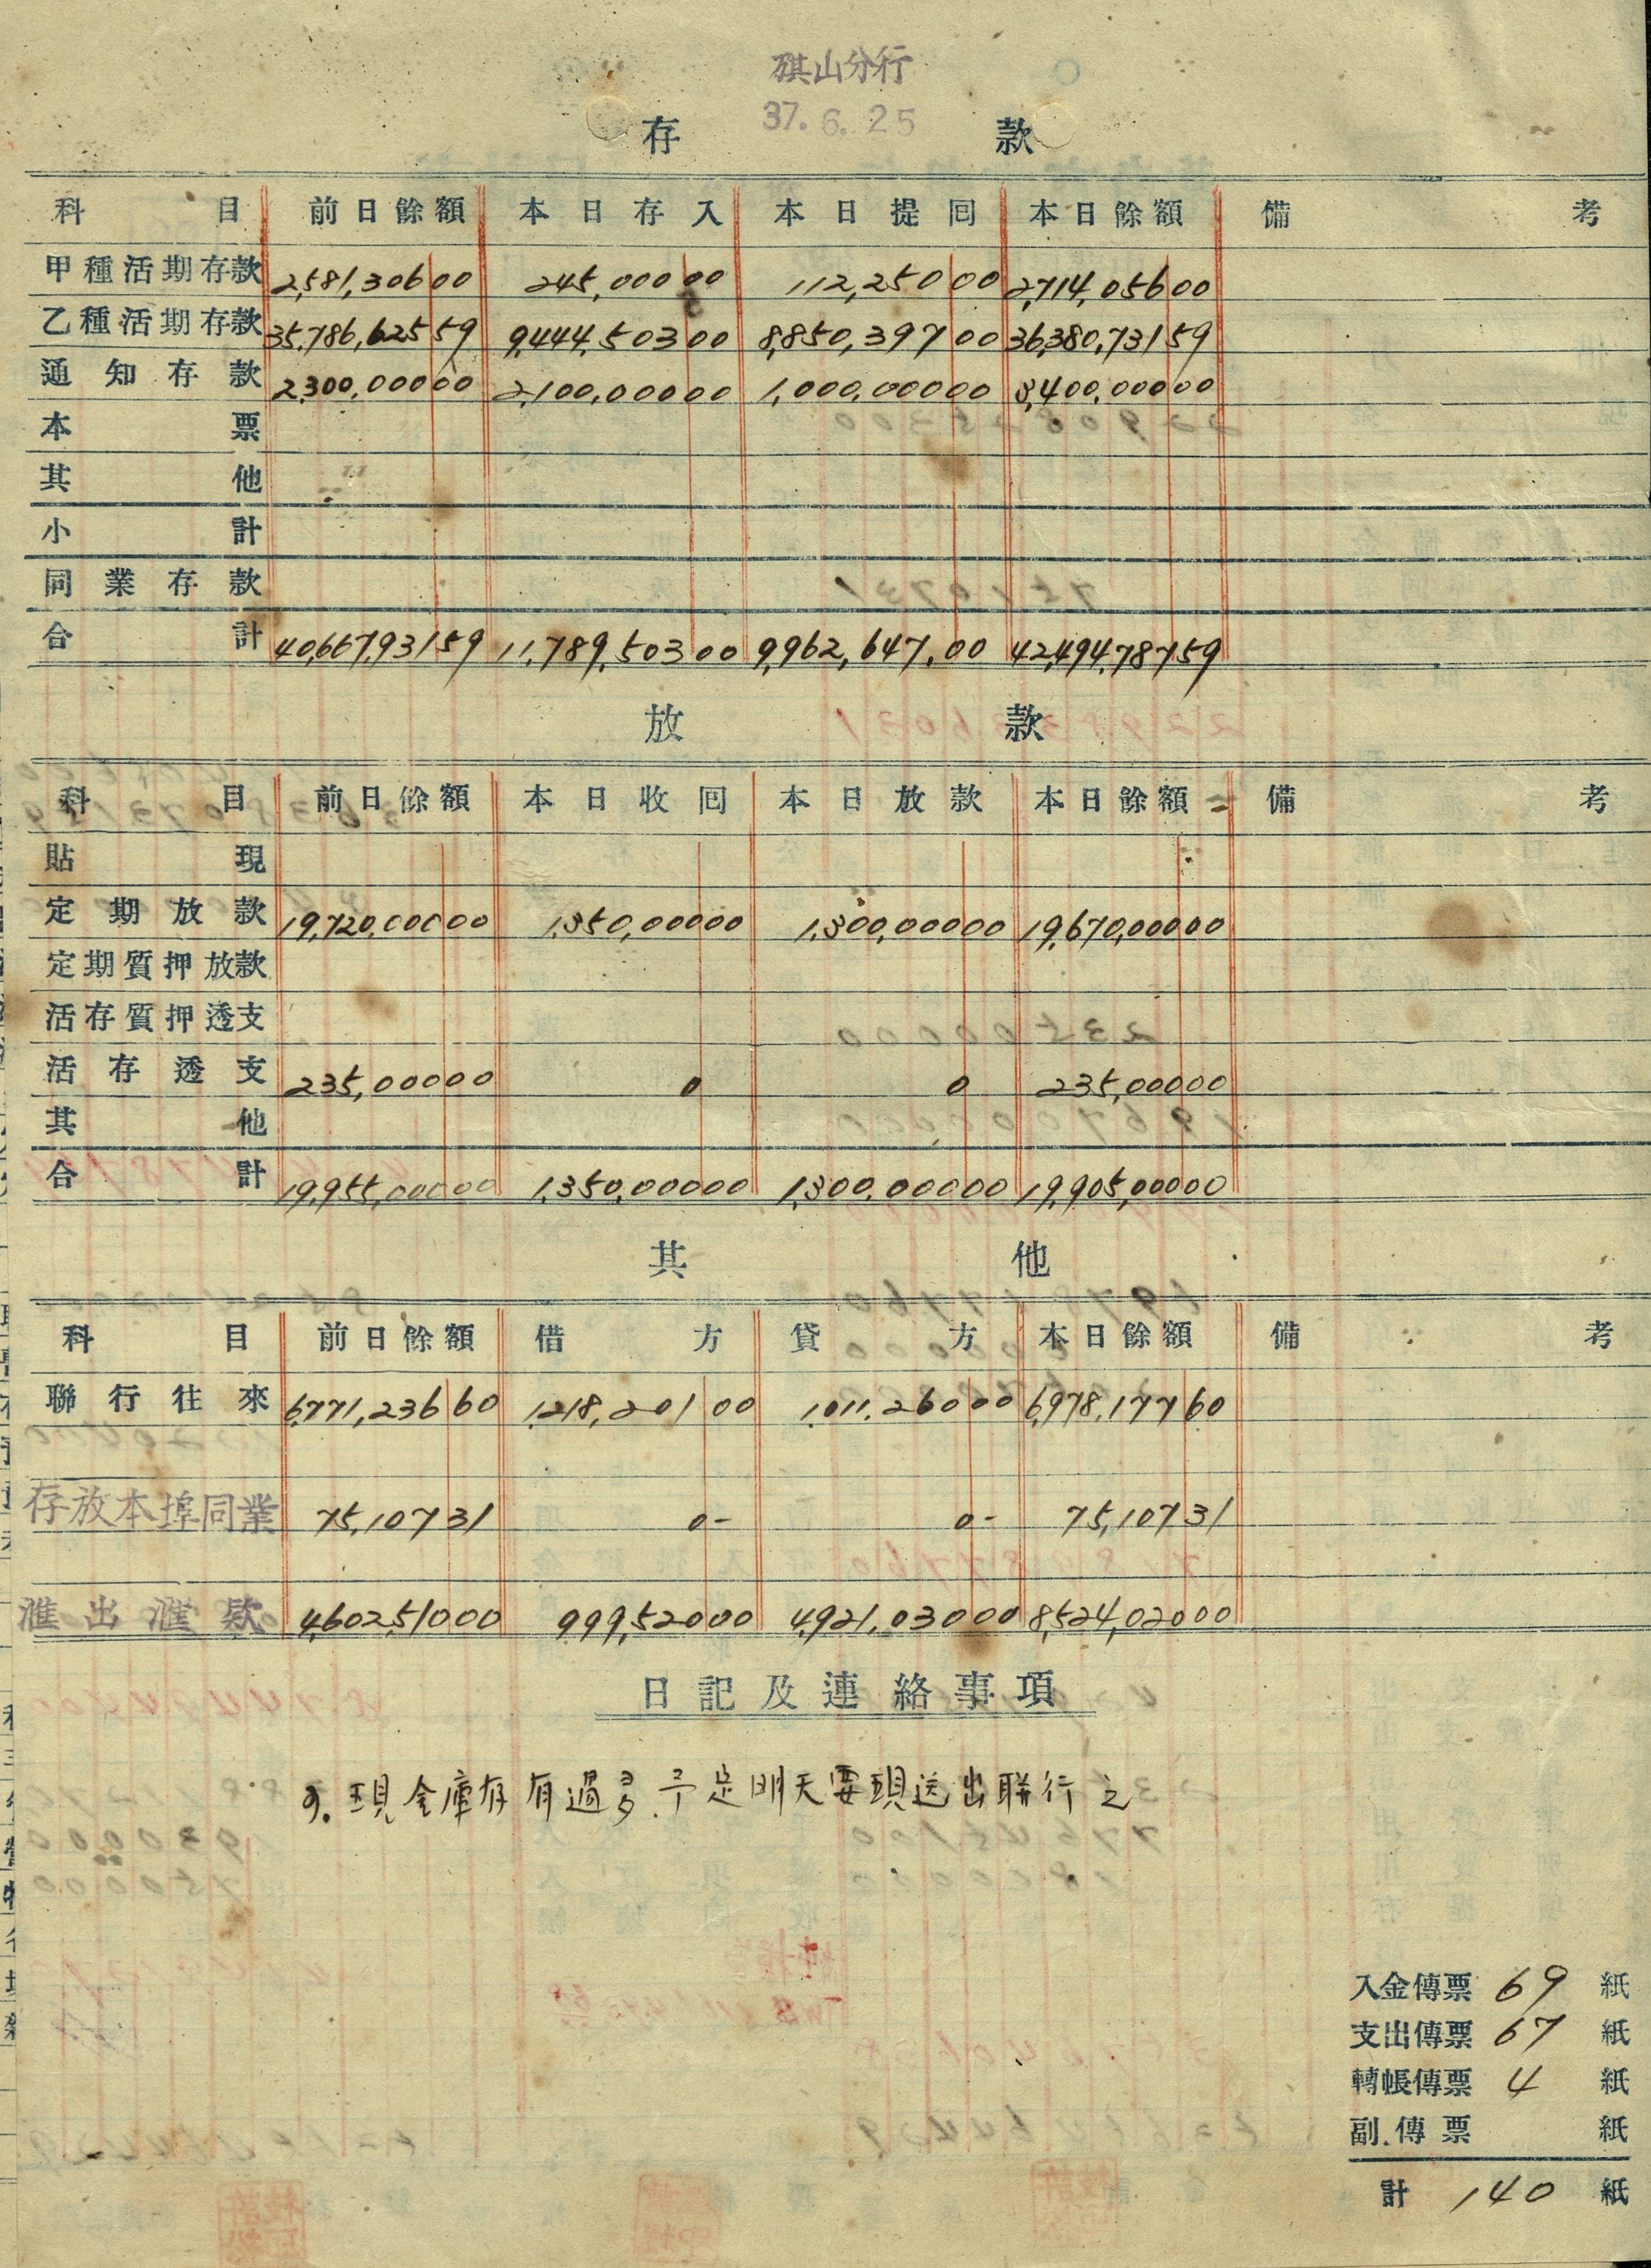 旗山分行
37. 6. 25
存 款
科目 前日餘額 本日存入 本日提回 本日餘額 備考
甲種活期存款 2,581,306 00 245,000 00 112,250 00 2,714,056 00
乙種活期存款 35,786,625 59 9,444,503 00 8,850,397 00 36,380,731 59
通知存款 2,300,000 00 2,100,000 00 1,000,000 00 3,400,000 00
本票
其他
小計
同業存款
合計 40,667,931 59 11,789,503 00 9,962,647,00 42,494,787 59
放 款
科目 前日餘額 本日收回 本日放款 本日餘額 備考
貼現
定期放款 19,720,000 00 1,350,000 00 1,300,000 00 19,670,000 00
定期質押放款
活存質押透支
活存透支 235,000 00 0 0 235,000 00
其他
合計 19,955,000 00 1,350,000 00 1,300,000 00 19,905,000 00
其 他
科目 前日餘額 借方 貸方 本日餘額 備考
聯行往來 6,771,236 60 1,218,201 00 1,011,260 00 6,978,177 60
存放本埠同業 75,107 31 0- 0- 75,107 31
滙出滙款 4,602,510 00 999,520 00 4,921,030 00 8,524,020 00
日記及連絡事項
現金庫存有過多.予定明天要現送出聯行之
入金傳票 69 紙
支出傳票 67 紙
轉帳傳票 4 紙
副傳票 紙
計 140 紙